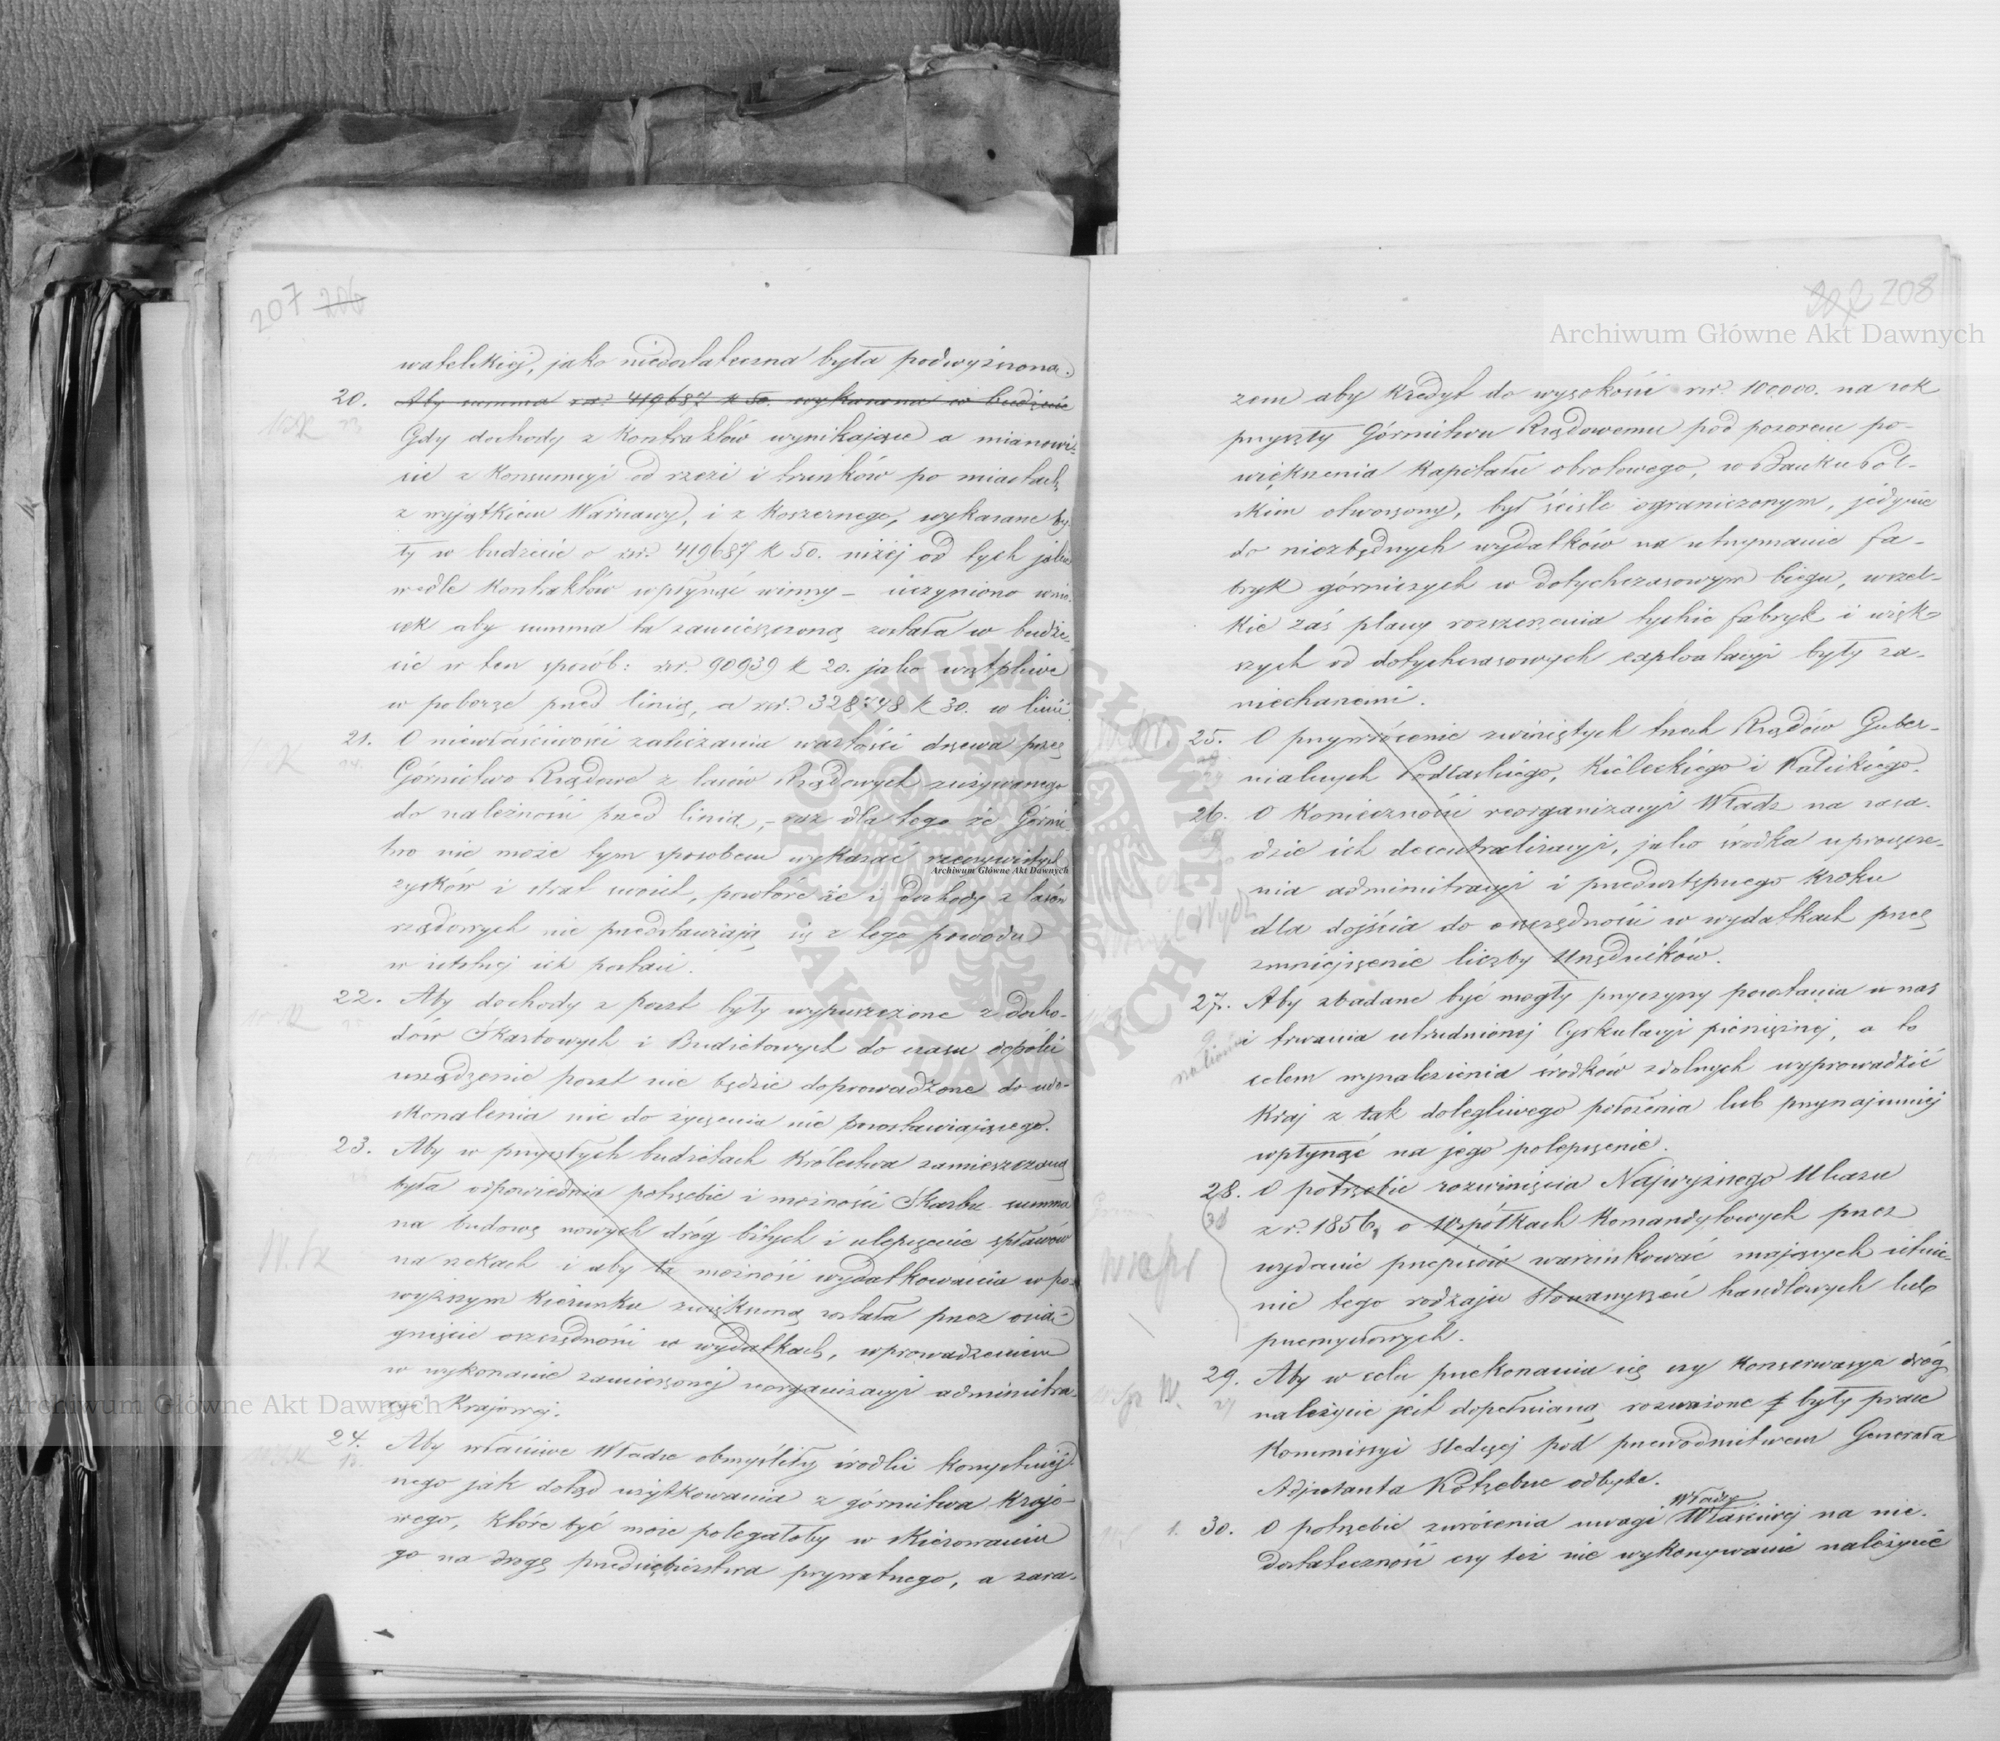 207 206
watelskiéj, jako niedostateczna była podwyższona.
20. Aby summa rsr. 419687 k 50. wykazana w budżecie
Gdy dochody z Kontraktów wynikające a mianowi-
cie z Konsumcyi od rzezi i trunków po miastach
z wyjątkiem Warszawy, i z Koszernego, wykazane by-
ły w budżecie o rsr. 419687 k 50. niżéj od tych jakie
wedle Kontraktów wpłynąć winny – uczyniono wnio-
sek aby summa ta zamieszczoną została w budże-
cie w ten sposób: rsr. 90939 k 20. jako wątpliwe
w poborze przed linią, a rsr. 328748 k 30. w linii.
21. O niewłaściwości zaliczania wartości drzewa przez
Górnictwo Rządowe z lasów Rządowych zużywanego
do należności przed linią, – raz dla tego że Górni-
ctwo nie może tym sposobem wykazać rzeczywistych
zysków i strat swoich, powtóre że i dochody z lasów
rządowych nie przedstawiają się z tego powodu
w istotnej ich postaci.
22. Aby dochody z poczt były wypuszczone z docho-
dów Skarbowych i Budżetowych do czasu dopóki
urządzenie poczt nie będzie doprowadzone do udo-
skonalenia nic do życzenia nie pozostawiającego.
23. Aby w przyszłych budżetach Królestwa zamieszczoną
była odpowiednia potrzebie i możności Skarbu summa
na budowę nowych dróg bitych i ulepszenie spławów
na rzekach i aby ta możność wydatkowania w po-
wyższym kierunku zwiększoną została przez osią-
gnięcie oszczędności w wydatkach, wprowadzeniem
w wykonanie zamierzonej reorganizacyi administra-
cyi Krajowej.
24. Aby właściwe Władze obmyśliły środki korzystniej-
nego jak dotąd użytkowania z górnictwa Krajo-
wego, które być może polegałoby w skierowaniu
go na drogę przedsiębierstwa prywatnego, a zara-
208
zem aby Kredyt do wysokości rsr. 100000. na rok
przyszły Górnictwu Rządowemu pod pozorem po-
większenia Kapitału obrotowego, w Banku Pol-
skim otworzony, był ściśle ograniczonym, jedynie
do niezbędnych wydatków na utrzymanie fa-
bryk górniczych w dotychczasowym biegu, wszel-
kie zaś plany rozszerzenia tychże fabryk i więk-
szych od dotychczasowych exploatacyi były za-
niechanemi.
25. O przywrócenie zwiniętych trzech Rządów Guber-
nialnych Podlaskiego, Kieleckiego i Kaliskiego.
26. O Konieczności reorganizacyi Władz na zasa-
dzie ich decentralizacyi, jako środka uproszcze-
nia administracyi i przedwstępnego Kroku
dla dojścia do oszczędności w wydatkach przez
zmniejszenie liczby Urzędników.
27. Aby zbadane być mogły przyczyny powstania u nas
i trwania utrudnionej Cyrkulacyi pieniężnej, a to
celem wynalezienia środków zdolnych wyprowadzić
Kraj z tak dolegliwego położenia lub przynajmniej
wpłynąć na jego polepszenie.
28. O potrzebie rozwinięcia Najwyższego Ukazu
z r. 1856, o Współkach Komandytowych przez
wydanie przepisów warunkować mających istnie-
nie tego rodzaju stowarzyszeń handlowych lub
przemysłowych.
29. Aby w celu przekonania się czy Konserwacya dróg
należycie jest dopełnianą rozważone były prace
Kommissyi śledczej pod przewodnictwem Generała
Adjutanta Kotzebue odbyte.
Władzy
1. 30. O potrzebie zwrócenia uwagi Właściwej na nie-
dostateczność czy też nie wykonywanie należycie
Archiwum Główne Akt Dawnych
Archiwum Główne Akt Dawnych
Archiwum Główne Akt Dawnych
ARCHIWUM GŁÓWNE AKT DAWNYCH W WARSZAWIE